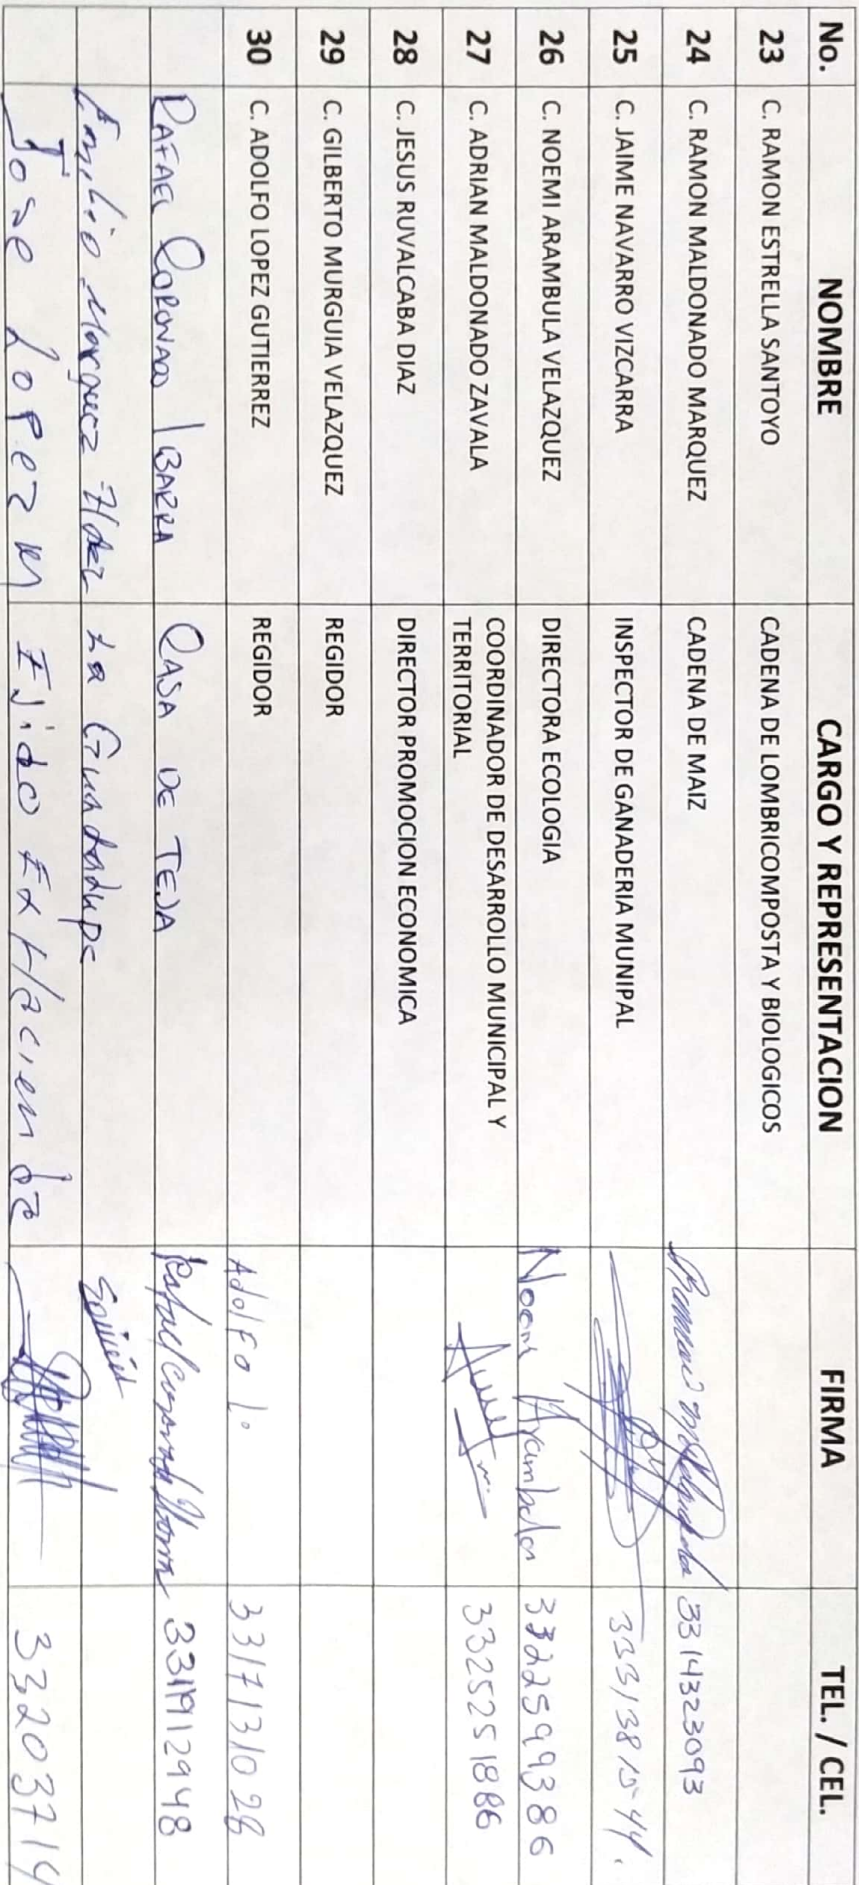 No. NOMBRE CARGO Y REPRESENTACION FIRMA TEL. / CEL.
23 C. RAMON ESTRELLA SANTOYO CADENA DE LOMBRICOMPOSTA Y BIOLOGICOS
24 C. RAMON MALDONADO MARQUEZ CADENA DE MAIZ 3314323093
25 C. JAIME NAVARRO VIZCARRA INSPECTOR DE GANADERIA MUNIPAL
26 C. NOEMI ARAMBULA VELAZQUEZ DIRECTORA ECOLOGIA Noemi Arambula 3322599386
27 C. ADRIAN MALDONADO ZAVALA COORDINADOR DE DESARROLLO MUNICIPAL Y
TERRITORIAL 3325251886
28 C. JESUS RUVALCABA DIAZ DIRECTOR PROMOCION ECONOMICA
29 C. GILBERTO MURGUIA VELAZQUEZ REGIDOR
30 C. ADOLFO LOPEZ GUTIERREZ REGIDOR Adolfo L. 3317131028
RAFAEL CORONADO IBARRA CASA DE TEJA 3319112948
Emilio Marquez Hdez La Guadalupe
Jose Lopez M Ejido Ex Hacienda 33203714